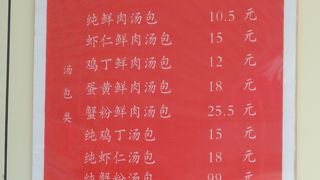 纯鲜肉汤包 10.5 元
虾仁鲜肉汤包 15 元
鸡丁鲜肉汤包 12 元
蛋黄鲜肉汤包 18 元
蟹粉鲜肉汤包 25.5 元
纯鸡丁汤包 15 元
纯虾仁汤包 18 元
纯蟹粉汤包 99 元
汤包类